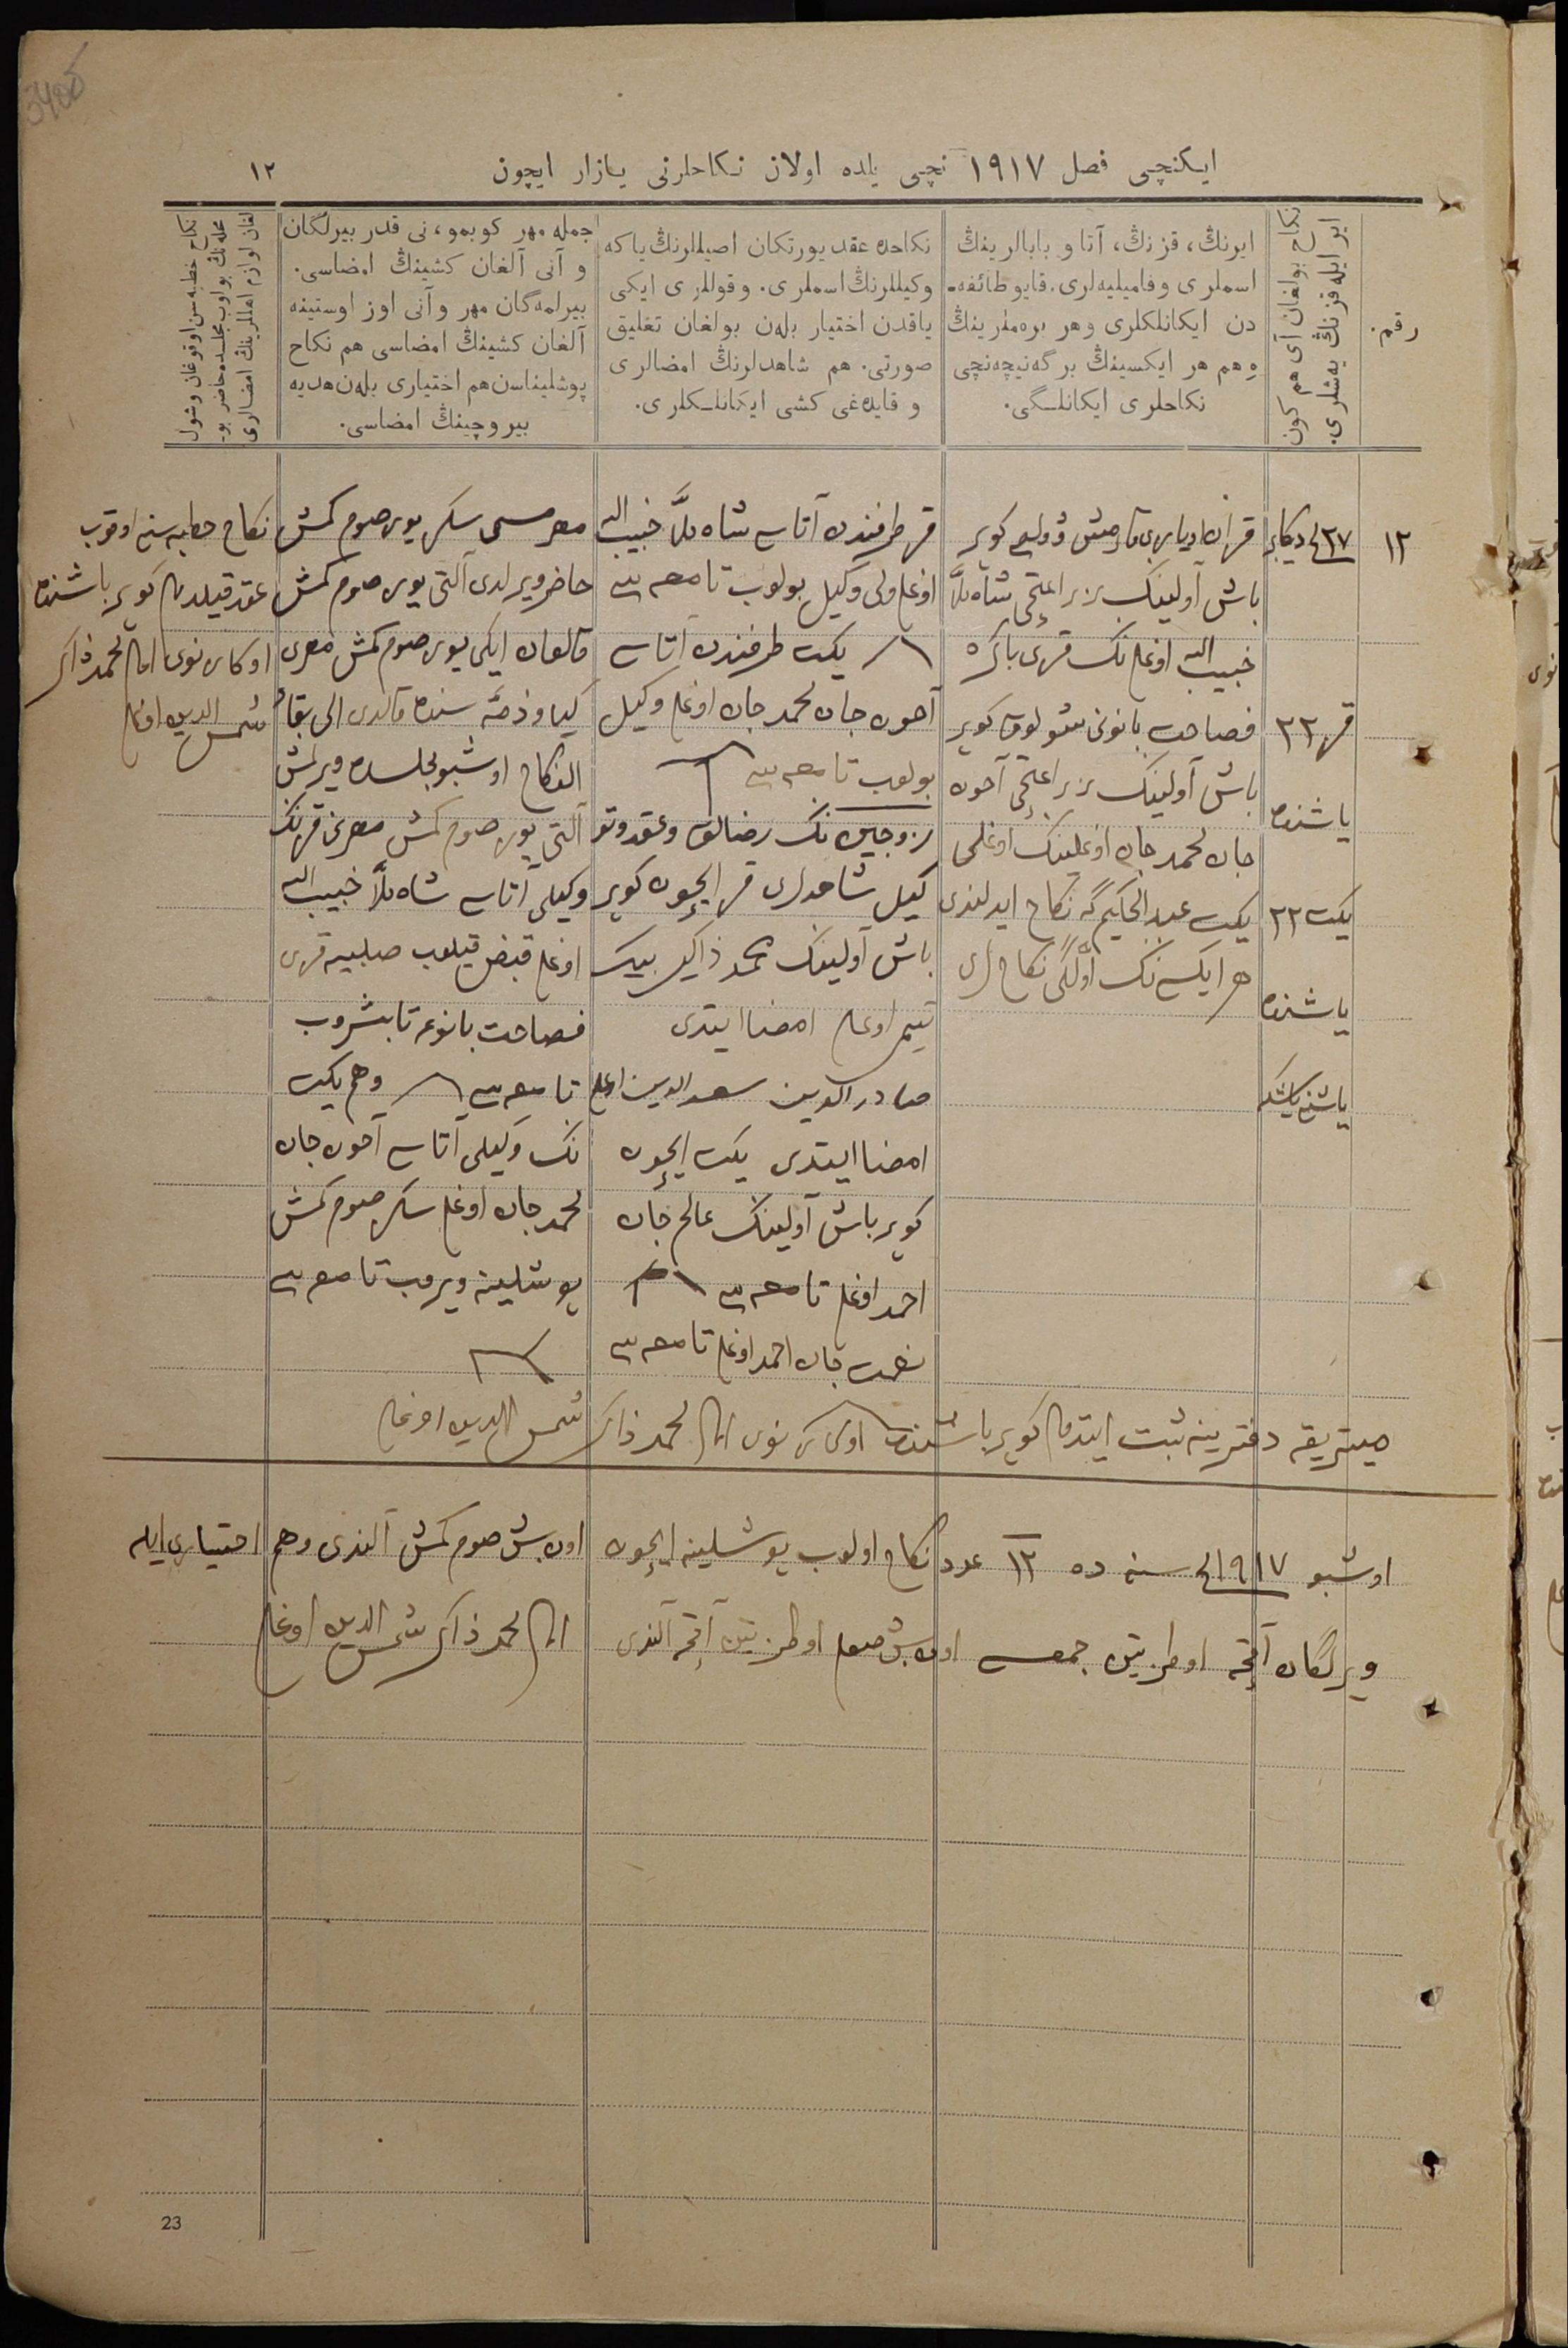 ایکنچی فصل ۱۹۱۷ نچی یلده اولان نکاحلرنی یازار ایچون
۱۲
رقم.
نکاح بولغان آی هم کون
ایر ایله قزنڭ یەشلری.
ایرنڭ، قزنڭ، آتا و بابالرینڭ
اسملری و فامیلیەلری. قایو طائفە-
دن ایکانلکلری وهر برەملرینڭ
وهم هر ایکسینڭ برگەنیچەنچی
نکاحلری ایکانلگی.
نکاحدە عقد یورتکان اصیللرنڭ یاکە
وکیللرنڭ اسملری. و قوللری ایکی
یاقدن اختیار بلەن بولغان تغلیق
صورتی. هم شاهدلرنڭ امضالری
و قایدەغی کشی ایکانلکلری.
جملە مهر کوبمو، نی قدر بیرلگان
و آنی آلغان کشینڭ امضاسی.
بیرلمەگان مهر و آنی اوز اوستینە
آلغان کشینڭ امضاسی هم نکاح
پوشلیناسن هم اختیاری بلەن هدیە
بیروچینڭ امضاسی.
نکاح خطبەسن اوقوغان وشول
محلەنڭ بولوب مجلسدە حاضر بو-
لغان لوازم اهاللرینڭ امضالری
۱۲
۲۷ نچی دیکابر
قز ۲۲
یاشنده
یکت ۲۲
یاشنده
باش آولینڭ شاه ملا
خبیب الله اوغلی نڭ قزی باکره
فصاحت بانونی کویر
باش آولینڭ آخون
جان محمد جان اوغلینڭ اوغلی
یکت عبد الحکیم گه نکاح ایدلندی
هر ایکسی نڭ اولگی نکاح لری
قز طرفندن آتاسی شاه ملا خبیب الله
اوغلی ولی وکیل بولوب تامغه سی
یکت طرفندن آتاسی
آخون جان محمد جان اوغلی وکیل
بولوب تامغه سی
زوجین نڭ رضالق وعقد وتو
کیل شاهدلری قز ایچون کویر
باش آولینڭ محمد ذاکر بیک
اوغلی امضا ایتدی
صادر الدین سعد الدین اوغلی
امضا ایتدی یکت ایچون
کویر باش آولینڭ عالم جان
احمد اوغلی تامغه سی
نعمت جان احمد اوغلی تامغه سی
مهر مسمی سکز یوز صوم کمش
حاضر ویرلدی آلتی یوز صوم کمش
قالغان ایکی یوز صوم کمش مهری
کیاو ذمه سنده قالدی الی بقاء
النکاح اوشبو مجلسده ویرلمش
آلتی یوز صوم کمش مهرنی قزنڭ
وکیلی آتاسی شاه ملا خبیب الله
اوغلی قبض قیلوب صلبیه قزی
فصاحت بانوغه تابشروب
تامغه سی وهم یکت
نڭ وکیلی آتاسی آخون جان
محمد جان اوغلی سکز صوم کمش
پوشلینه ویروب تامغه سی
نکاح خطبه سنی اوقوب
عقد قیلدم کویر باشنده
امام محمد ذاکر
شمس الدین اوغلی
میتریقه دفترینه ثبت ایتدم کویر باشنده امام محمد ذاکر شمس الدین اوغلی
اوشبو ۱۹۱۷ نچی سنه ده ۱۲ عدد نکاح اولوب پوشلینه ایچون اون بش صوم کمش آلندی وهم اختیاری ایله
ویرلگان آقچه اوطز تین جمعسی اون بش صوم اوطز تین آقچه آلندی امام محمد ذاکر شمس الدین اوغلی
23